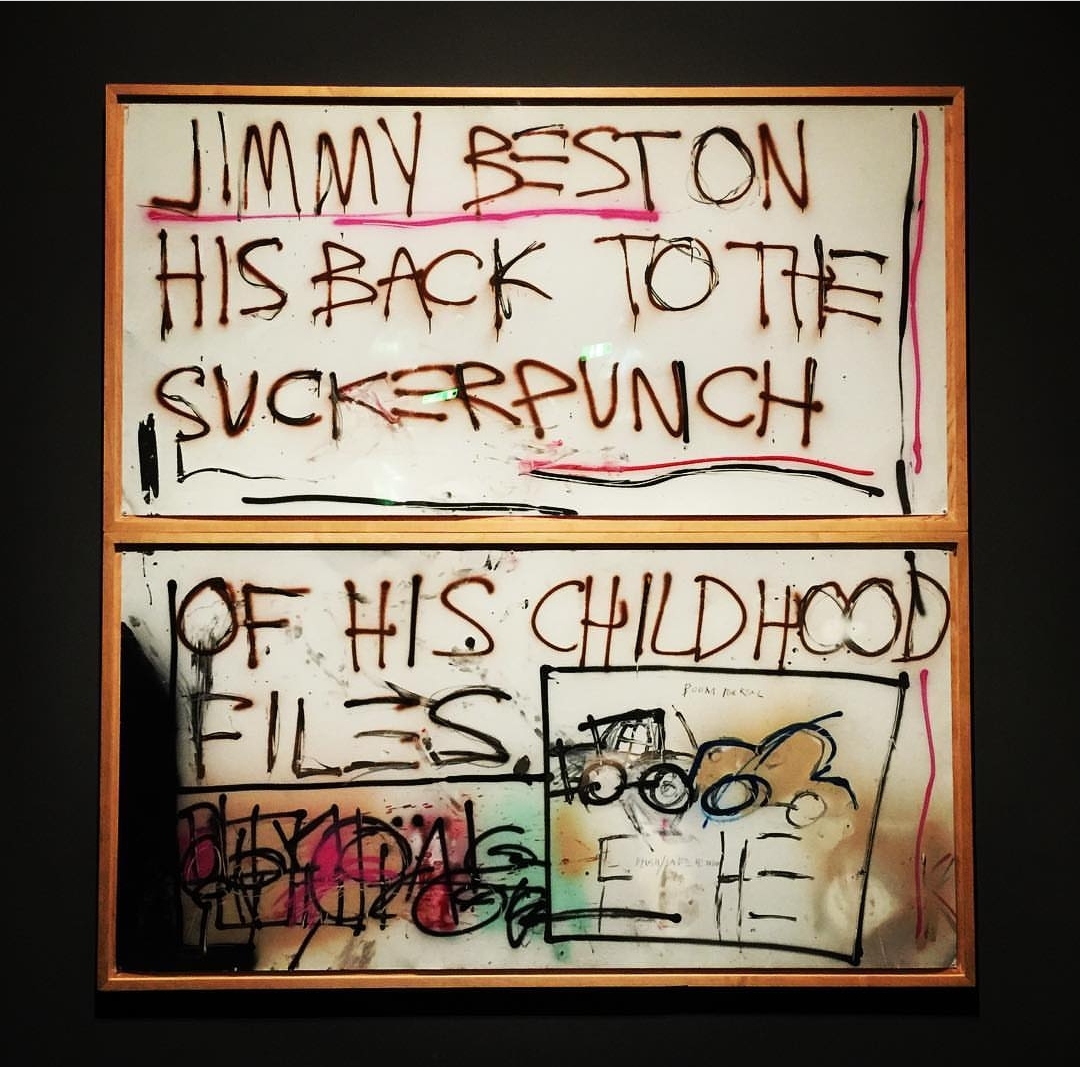 JIMMY BEST ON
HIS BACK TO THE
SUCKERPUNCH
OF HIS CHILDHOOD
FILES.